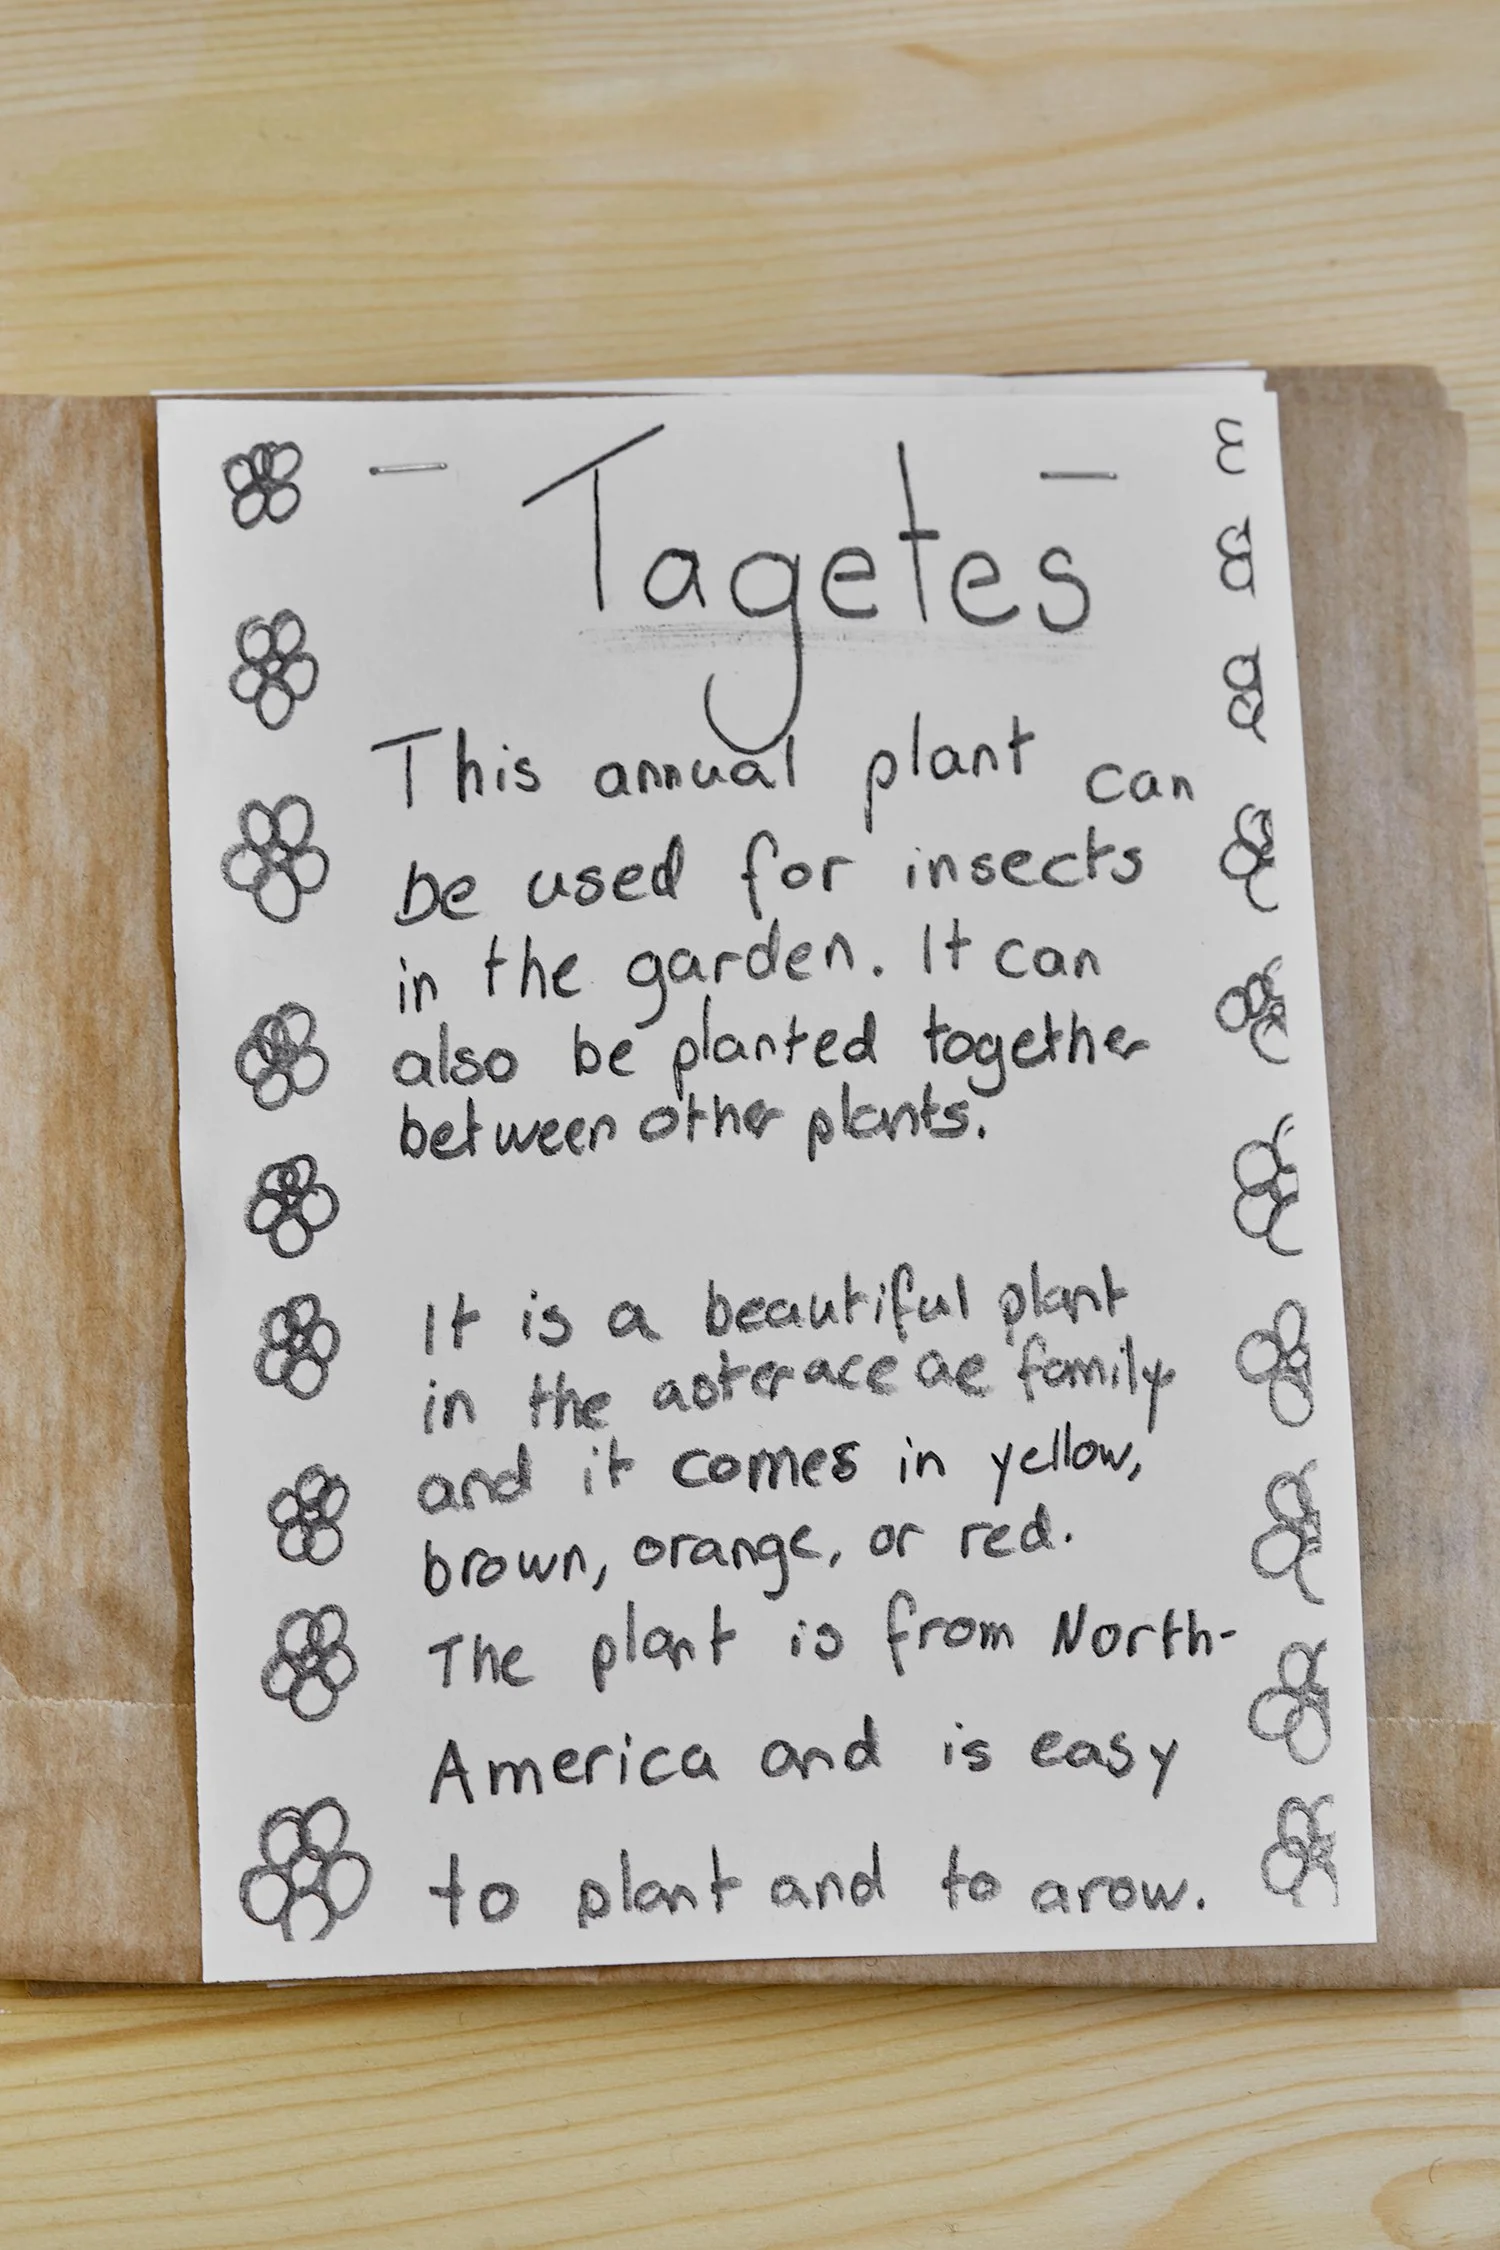 Tagetes
This annual plant can
be used for insects
in the garden. It can
also be planted together
between other plants.
It is a beautiful plant
in the asteraceae family
and it comes in yellow,
brown, orange, or red.
The plant is from North-
America and is easy
to plant and to arow.